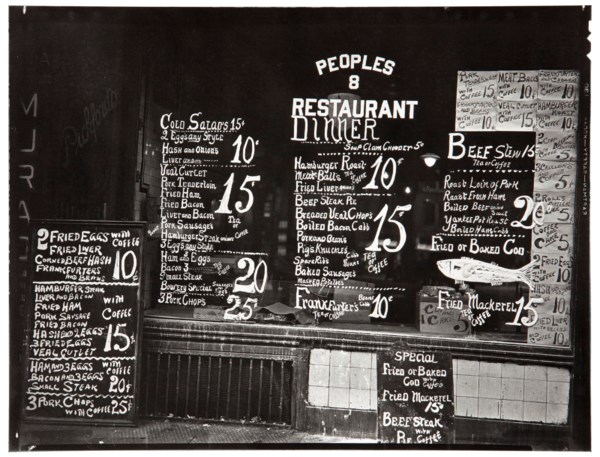 PEOPLES
8
RESTAURANT
DINNER
Soup Clam Chowder 5¢
Cold Salads 15¢
2 Eggs any Style
Hash and Onions
10¢
Veal Cutlet
Pork Tenderloin
Fried Ham
Fried Bacon
Liver and Bacon
Pork Sausages
Hamburger Steak
3 Eggs any Style
15¢
Tea or Coffee
Ham and Eggs
Bacon 3
Small Steak
Bowery Special
20¢
3 Pork Chops
25¢
Hamburger Roast
Meat Balls
Fried Liver
10¢
Beef Steak Pie
Breaded Veal Chops
Boiled Bacon Cabb
Pork and Beans
Pigs Knuckles
Spare Ribs
Baked Sausages
Mashed Potatoes
15¢
Tea or Coffee
Frankfurter's
10¢
Beef Stew 15
Tea or Coffee
Roast Loin of Pork
Roast Fresh Ham
Boiled Beef
Yankee Pot Roast
Boiled Ham Cabb
20¢
Fried or Baked Cod
Fried Mackerel 15¢
Tea or Coffee
2 Fried Eggs with Coffee
Fried Liver
Corned Beef Hash
Frankfurters
and Beans
10¢
Hamburger Steak
Liver and Bacon
Fried Ham
Pork Sausage
Fried Bacon
Hash and 2 Eggs
3 Fried Eggs
Veal Cutlet
with Coffee
15¢
Ham and 3 Eggs
Bacon and 3 Eggs
Small Steak
with Coffee
20¢
3 Pork Chops
with Coffee 25¢
Special
Fried or Baked
Cod with Coffee
Fried Mackerel
15¢
Beef Steak
Pie with Coffee
Meat Balls
with Coffee 10¢
Veal Cutlet
with Coffee
Hamburger